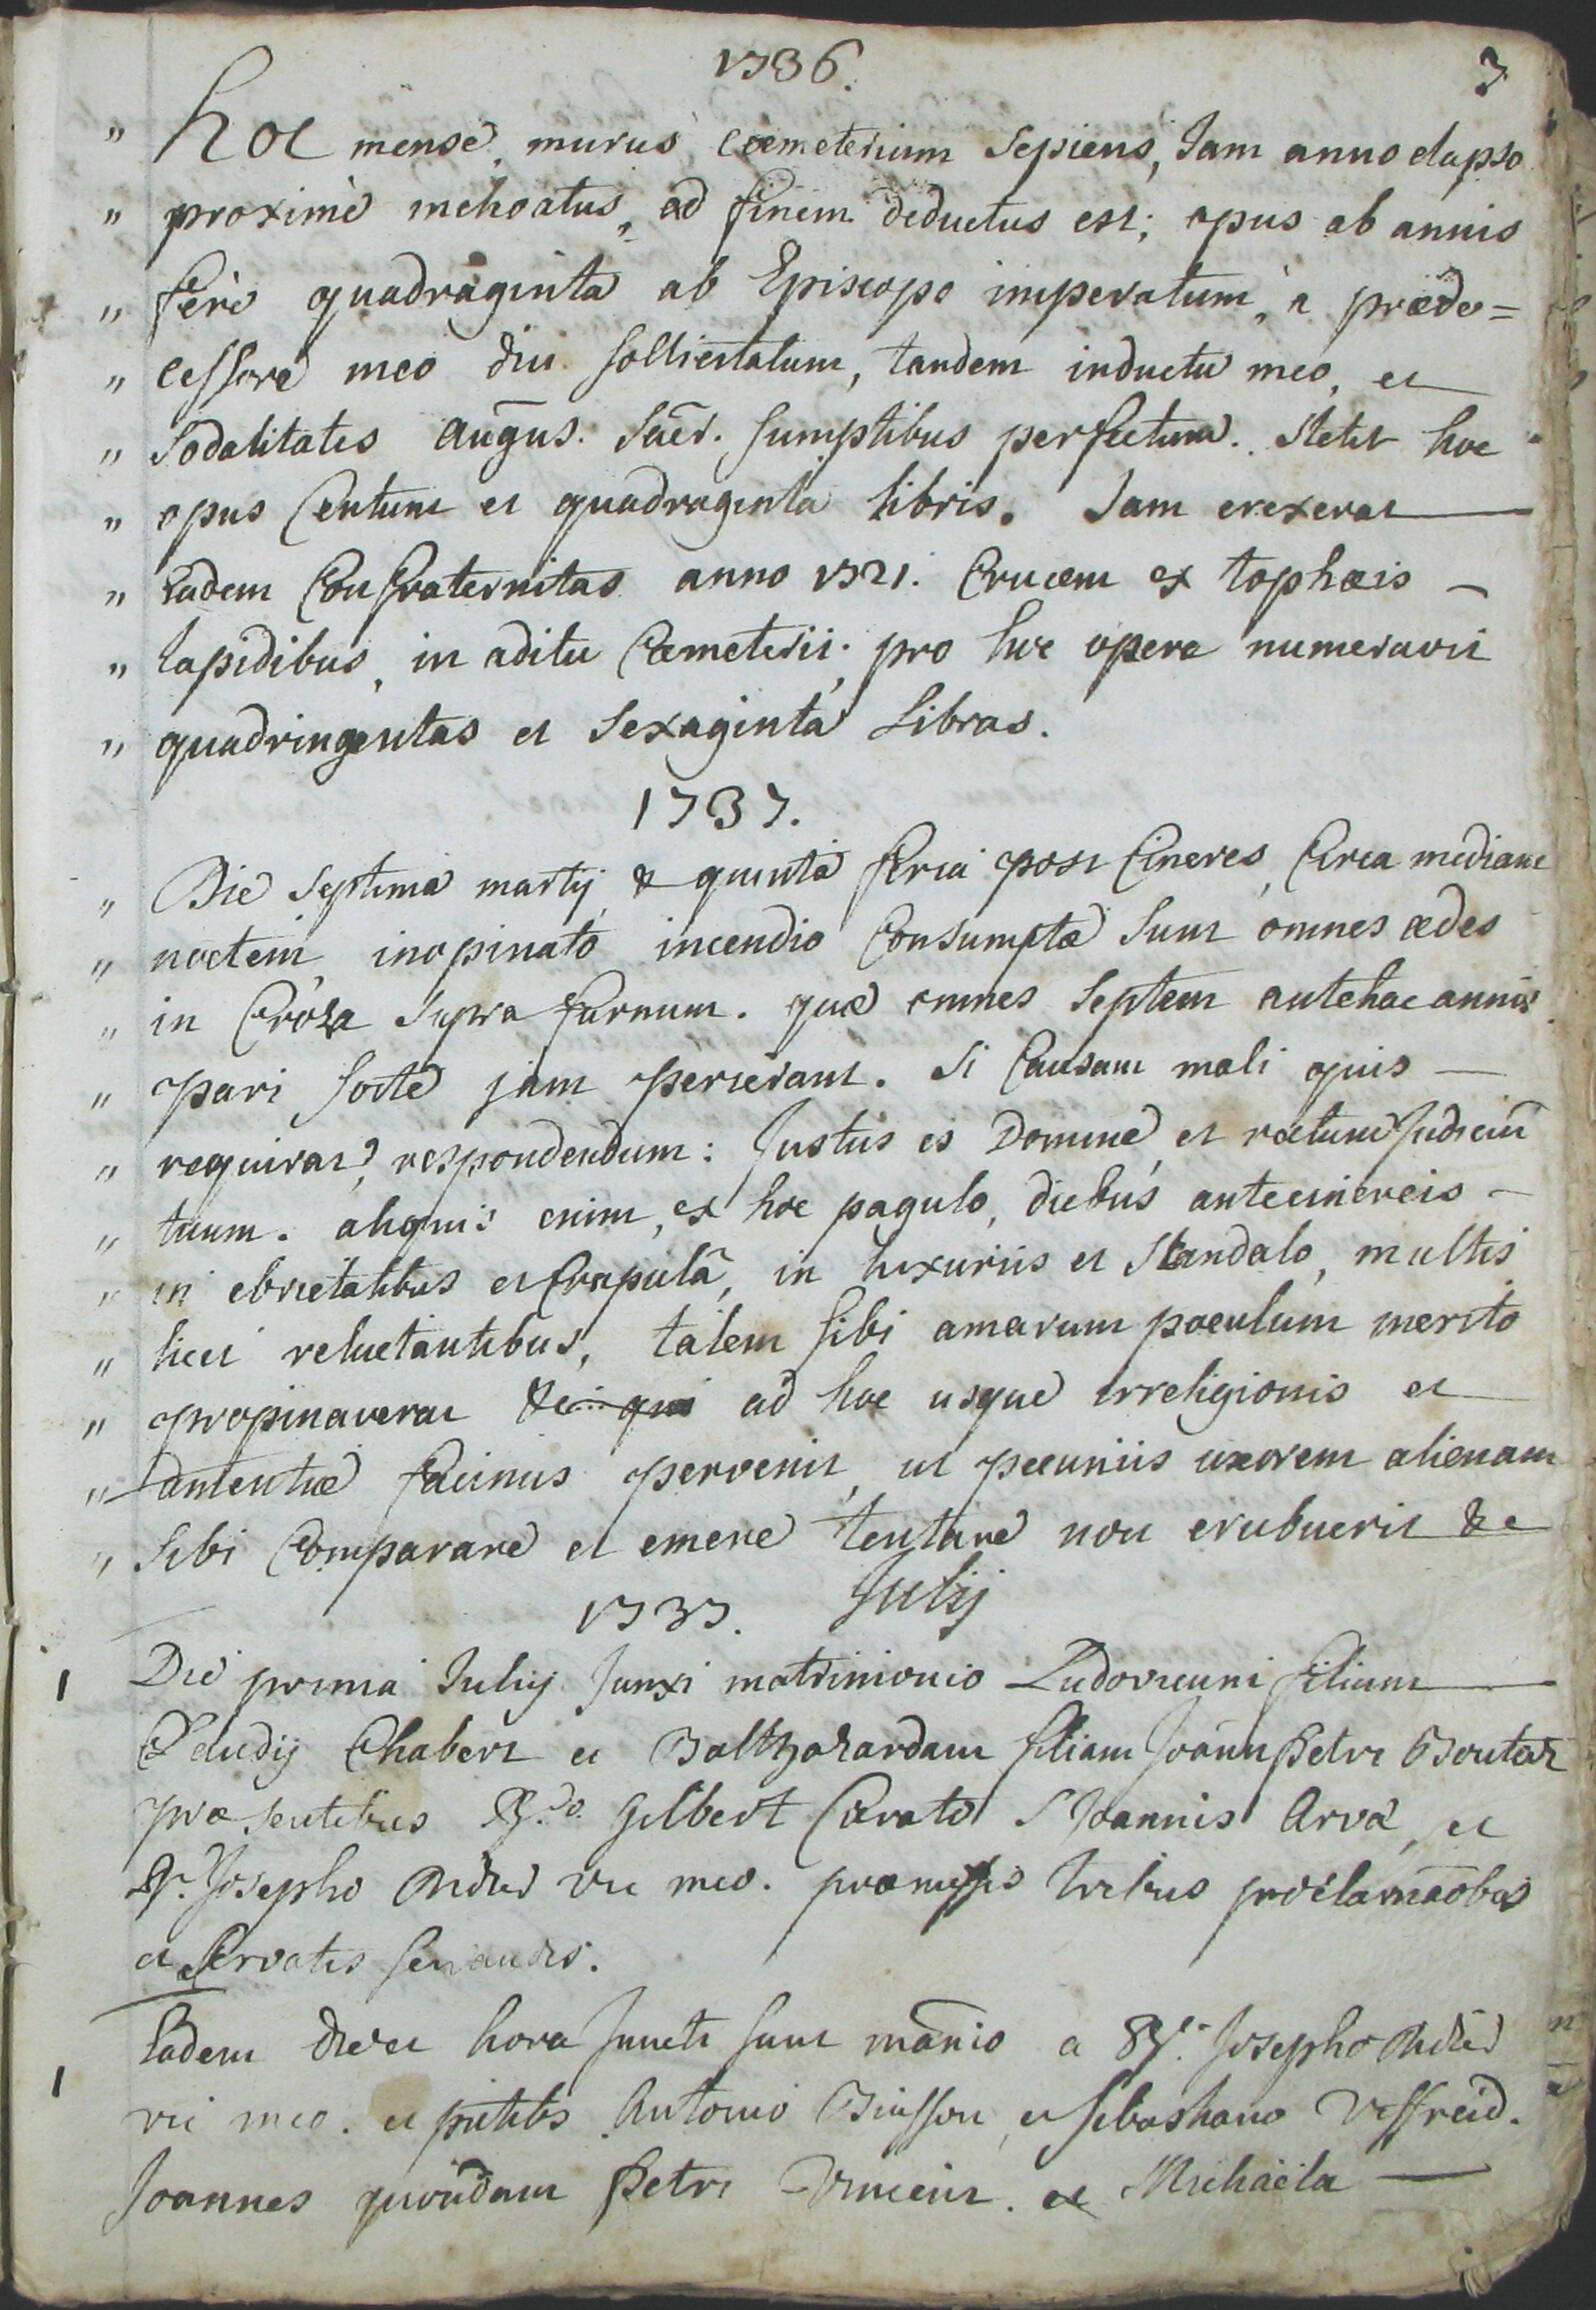 1736.
7
" hoc mense, murus cœmeterium Sepiens, Jam anno elapso
" proximè inchoatus, ad finem deductus est; opus ab annis
" ferè quadraginta ab Episcopo imperatum, à præde=
" cessore meo diu sollicitatum, tandem inductu meo, et
" Sodalitatis augūs. Sacr. sumptibus perfectum. Stetit hoc
" opus Centum et quadraginta libris. Jam erexerat
" Eadem Confraternitas anno 1721. Crucem ex tophæis
" lapidibus, in aditu Cœmeterii. pro hoc opere numeravit
" quadringentas et Sexaginta Libras.
1737.
" Die Septima martij & quinta feria post Cineres, Circa mediam
" noctem, inopinato incendio Consumptæ Sunt omnes ædes
" in Croza Supra furnum. quæ omnes Septem antehac annis
" pari sorte jam perierant. Si Causam mali quis
" requirat, respondendum: Justus es Domine et rectum Judiciū
" tuum. aliquis enim, ex hoc pagulo, diebus antecinereis
" in ebrietatibus et Crapulâ, in luxuriis et Scandalo, multis
" licet reluctantibus, talem sibi amarum poculum merito
" propinaverat qui ad hoc usque irreligionis et
" amentiæ facinus pervenit, ut pecuniis uxorem alienam
" Sibi Comparare et emere tentare non erubuerit &c
1737. Julij
1 Die prima Julij Junxi matrimonio Ludovicum filium
Claudij Chabert et Balthazardam filiam Joann Petri Boutet
præsentibus Rdo. Gilbert Curato S Joannis Arvæ, et
Rr. Josepho Didier vic meo. præmissis tribus proclamāobus
et Servatis servandis.
1 Eadem die et hora Juncti sunt mānio a Rr. Josepho Didier
vic meo. et pntibs Antonio Buisson, et sebastiano Veffreid.
Joannes quondam Petri Vincent. et Michaela